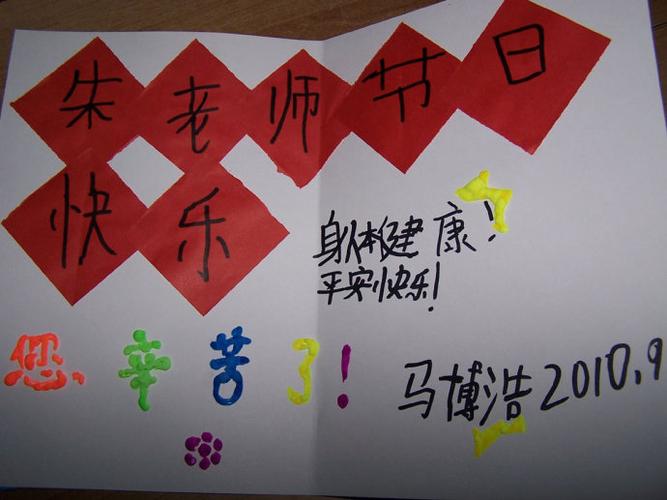 朱老师节日
快乐
身体健康!
平安快乐!
您辛苦了!
马博浩2010.9